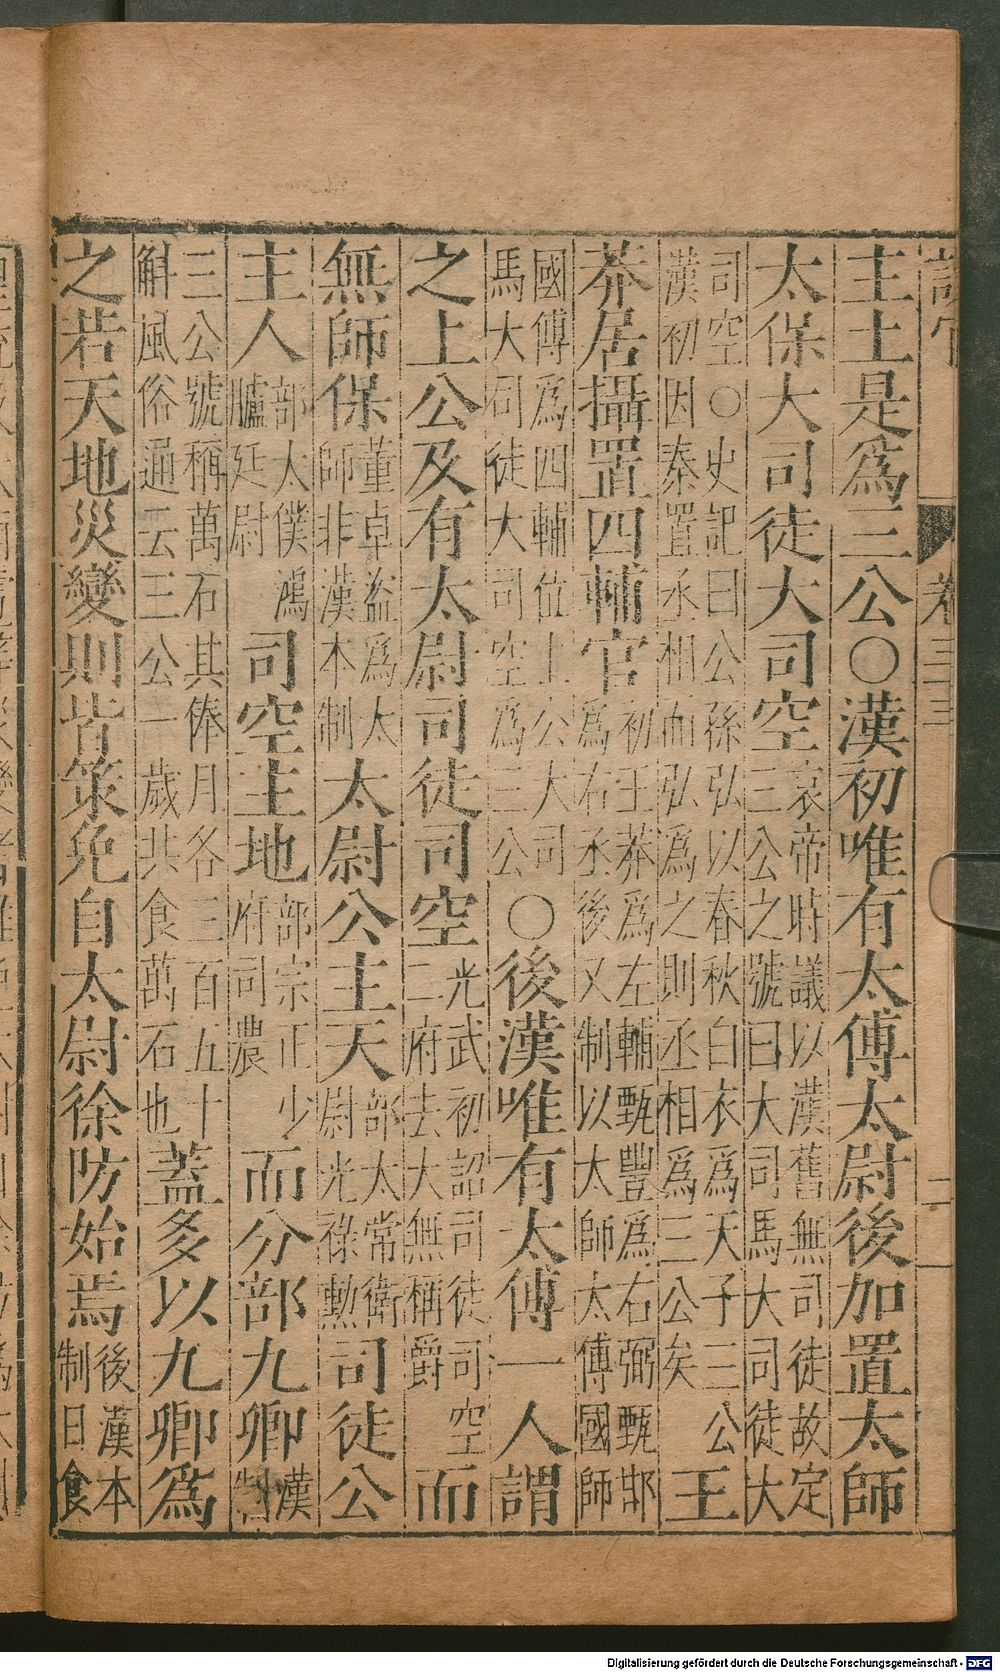 卷三三 二
主土是爲三公○漢初唯有太傅太尉後加置太師
太保大司徒大司空哀帝時議以漢舊無司徒故定三公之號曰大司馬大司徒大
司空○史記曰公孫弘以春秋白衣爲天子三公漢初因秦置丞相而弘爲之則丞相爲三公矣王
莽居攝置四輔官初王莽爲左輔甄豐爲右弼甄邯爲右丞後又制以太師太傅國師
國傅爲四輔位上公大司馬大司徒大司空爲三公○後漢唯有太傅一人謂
之上公及有太尉司徒司空光武初詔司徒司空二府去大無稱爵而
無師保董卓盗爲太師非漢本制太尉公主天部太常衛尉光祿勳司徒公
主人部太僕鴻臚廷尉司空主地部宗正少府司農而分部九卿漢制
三公號稱萬石其俸月各三百五十斛風俗通云三公一歲共食萬石也蓋多以九卿爲
之若天地災變則皆策免自太尉徐防始焉後漢本制日食
Digitalisierung gefördert durch die Deutsche Forschungsgemeinschaft - DFG